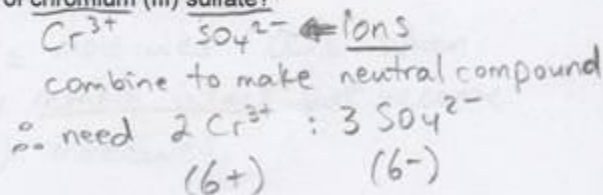 of chromium (III) sulfate?
Cr³⁺ SO₄²⁻ ⇐ ions
combine to make neutral compound
∴ need 2 Cr³⁺ : 3 SO₄²⁻
(6+) (6-)